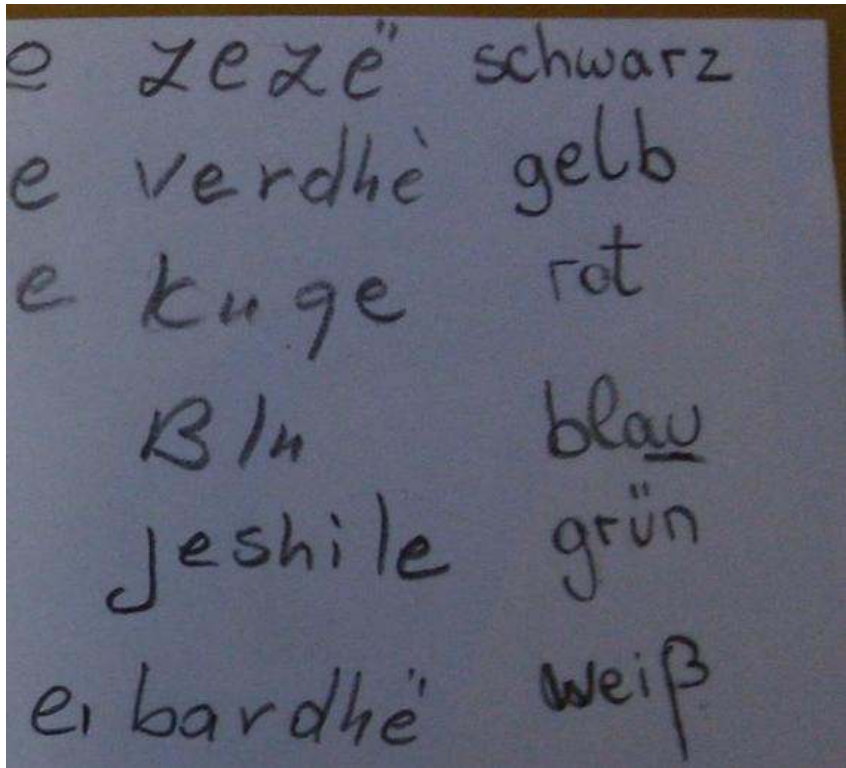 e zezë schwarz
e verdhè gelb
e kuqe rot
Blu blau
jeshile grün
e bardhë weiß